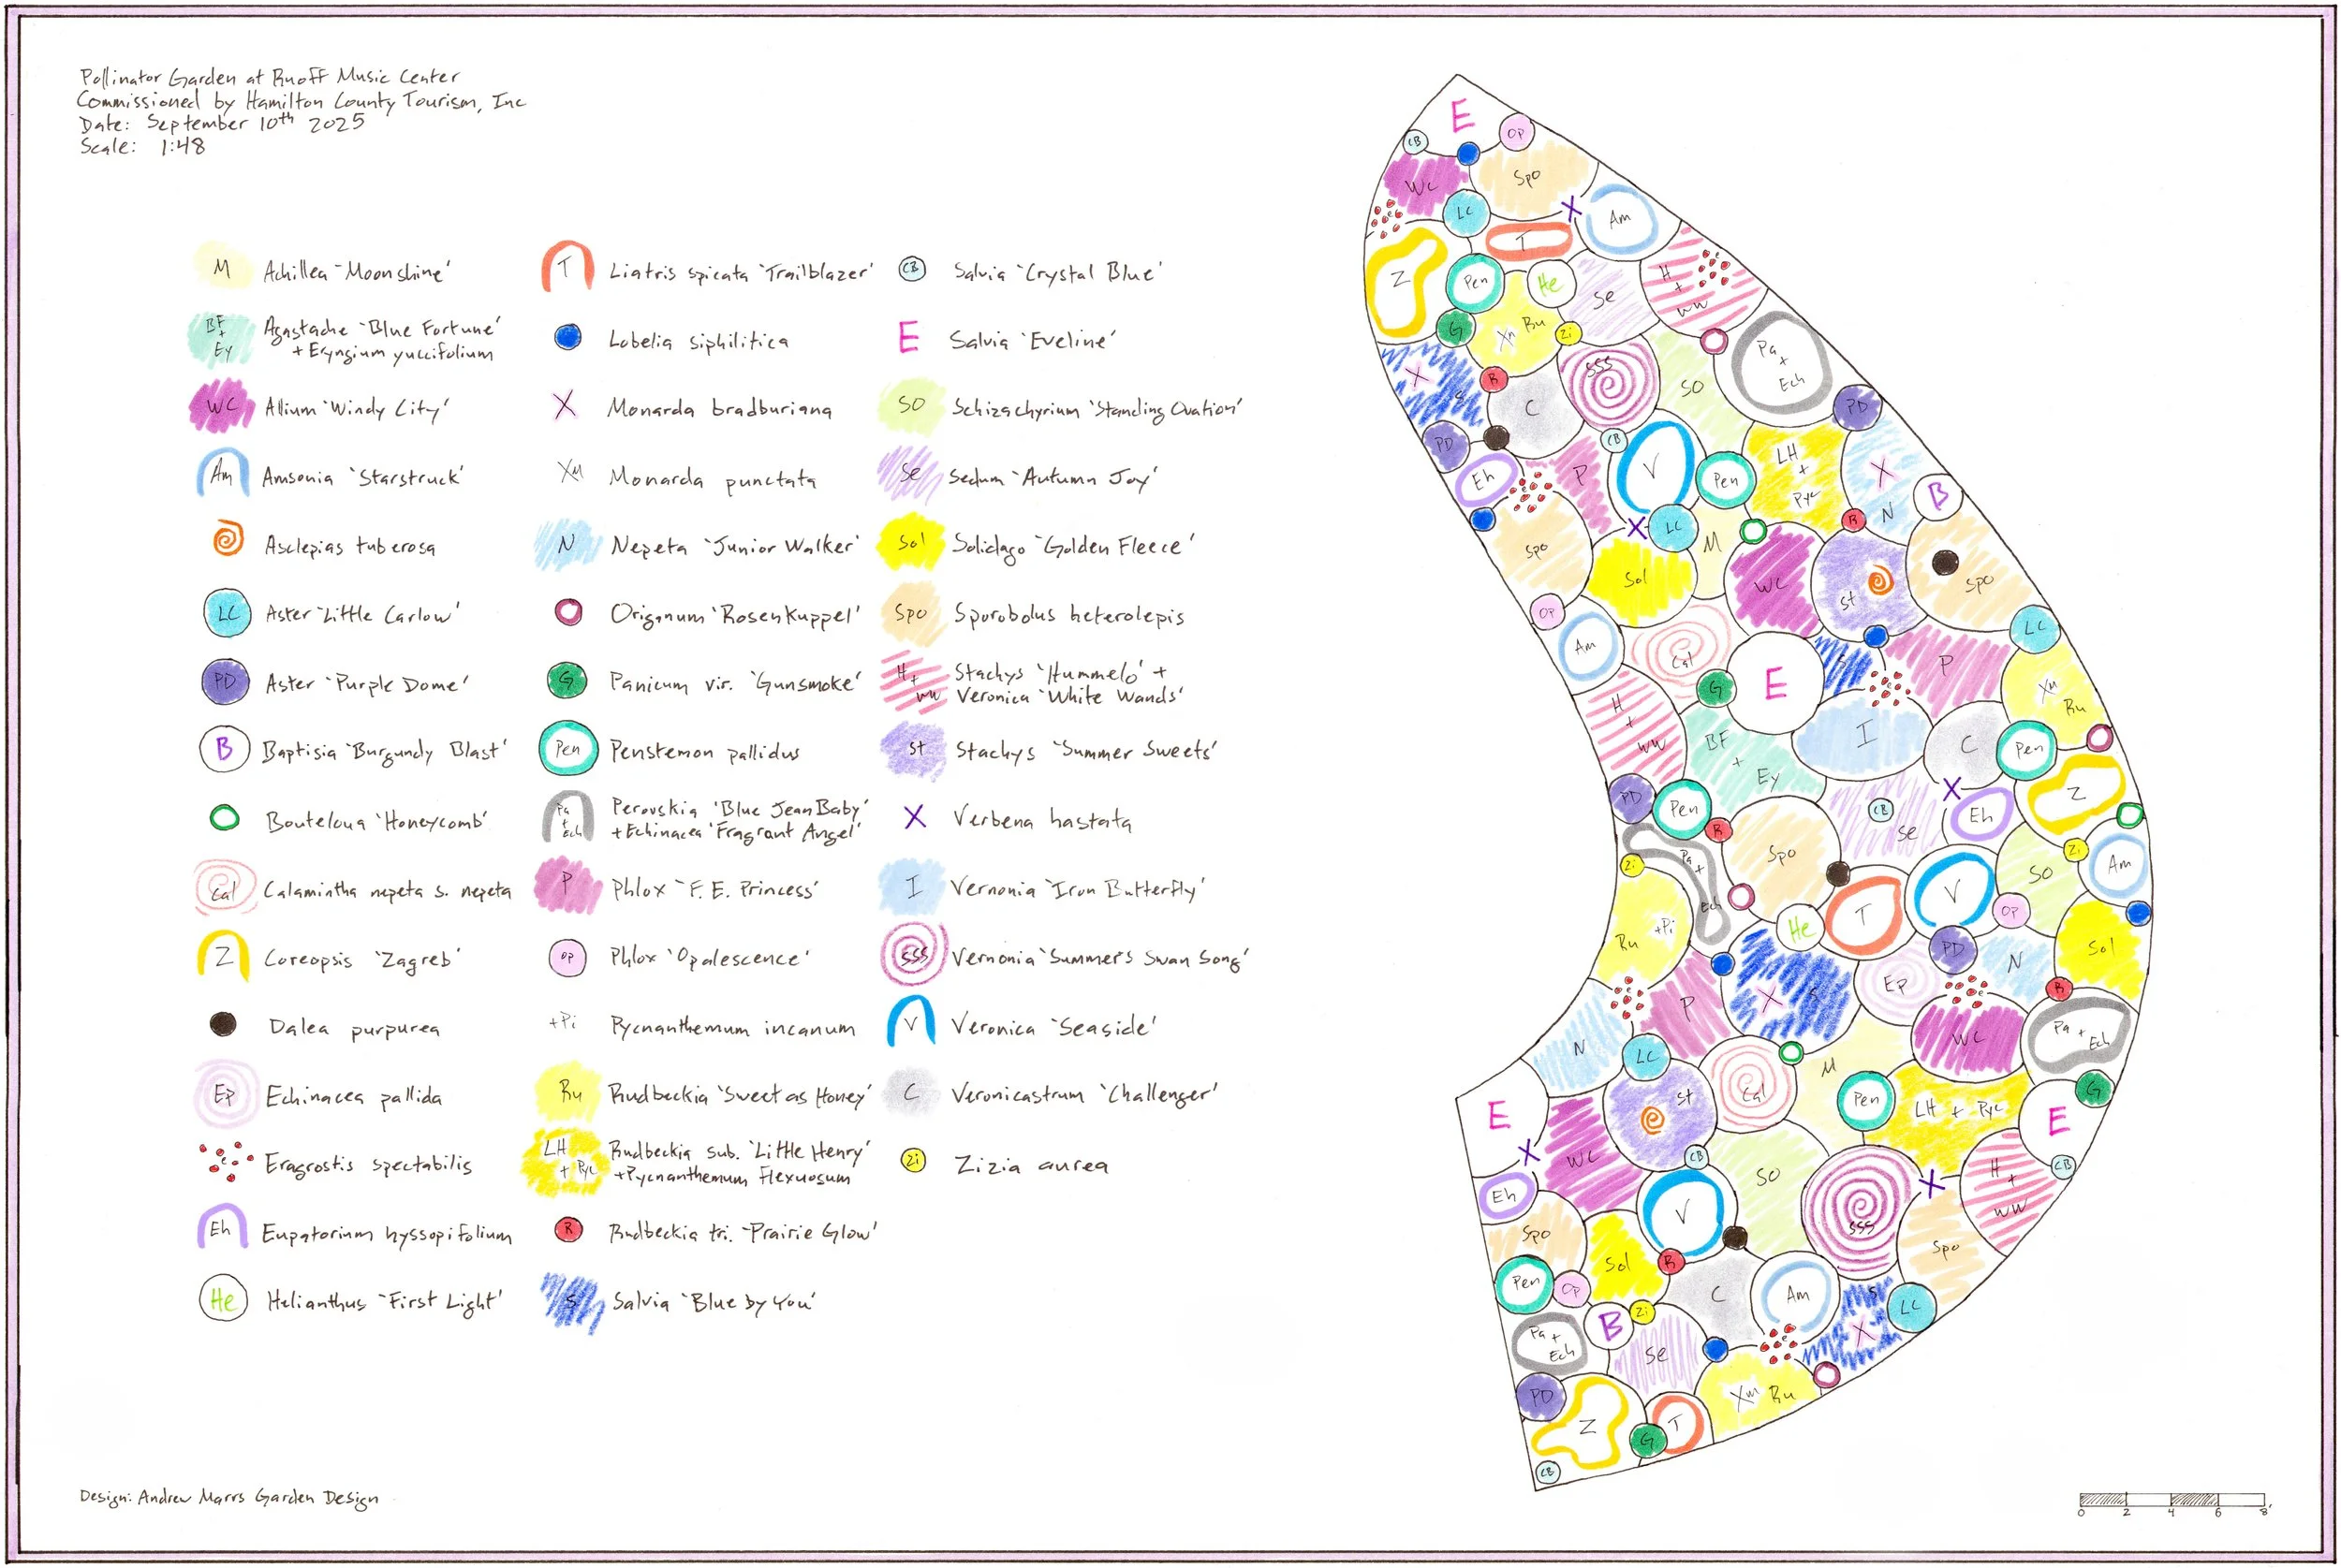 Pollinator Garden at Ruoff Music Center
Commissioned by Hamilton County Tourism, Inc
Date: September 10th 2025
Scale: 1:48
M Achillea 'Moonshine'
BF + Ey Agastache 'Blue Fortune'
+ Eryngium yuccifolium
WC Allium 'Windy City'
Am Amsonia 'Starstruck'
Asclepias tuberosa
LC Aster 'Little Carlow'
PD Aster 'Purple Dome'
B Baptisia 'Burgundy Blast'
Bouteloua 'Honeycomb'
Cal Calamintha nepeta s. nepeta
Z Coreopsis 'Zagreb'
Dalea purpurea
Ep Echinacea pallida
e Eragrostis spectabilis
Eh Eupatorium hyssopifolium
He Helianthus 'First Light'
T Liatris spicata 'Trailblazer'
Lobelia siphilitica
X Monarda bradburiana
Xm Monarda punctata
N Nepeta 'Junior Walker'
Origanum 'Rosenkuppel'
G Panicum vir. 'Gunsmoke'
Pen Penstemon pallidus
Pa + Ech Perovskia 'Blue Jean Baby'
+ Echinacea 'Fragrant Angel'
P Phlox 'F. E. Princess'
OP Phlox 'Opalescence'
+Pi Pycnanthemum incanum
Ru Rudbeckia 'Sweet as Honey'
LH + Pyc Rudbeckia sub. 'Little Henry'
+Pycnanthemum flexuosum
R Rudbeckia tri. 'Prairie Glow'
S Salvia 'Blue by You'
CB Salvia 'Crystal Blue'
E Salvia 'Eveline'
SO Schizachyrium 'Standing Ovation'
Se Sedum 'Autumn Joy'
Sol Solidago 'Golden Fleece'
Spo Sporobolus heterolepis
H + WW Stachys 'Hummelo' +
Veronica 'White Wands'
St Stachys 'Summer Sweets'
X Verbena hastata
I Vernonia 'Iron Butterfly'
SSS Vernonia 'Summer's Swan Song'
V Veronica 'Seaside'
C Veronicastrum 'Challenger'
Zi Zizia aurea
E
CB
OP
WC
Spo
e
LC
X
Am
T
Z
Pen
He
Se
H + WW
e
G
Xm Ru
Zi
X
S
R
C
SSS
SO
Pa + Ech
PD
PD
CB
Eh
e
P
V
Pen
LH + Pyc
X
N
B
Spo
X
LC
M
R
Sol
WC
St
Spo
OP
Am
Cal
LC
G
E
S
e
P
Xm
Ru
H + WW
BF + Ey
I
C
Pen
PD
Pen
R
X
Z
CB
Se
Eh
Zi
Pa + Ech
Spo
Zi
Am
SO
V
T
He
OP
Ru +Pi
PD
N
Sol
Ep
e
R
e
P
X
S
WC
Pa + Ech
N
LC
Cal
M
Pen
LH + Pyc
G
E
E
St
X
WC
CB
SO
SSS
X
H + WW
CB
Eh
V
Spo
Sol
R
Spo
Pen
OP
C
Am
S
X
LC
B
Zi
Pa + Ech
Se
e
PD
Z
G
T
Xm Ru
CB
Design: Andrew Marrs Garden Design
0 2 4 6 8'